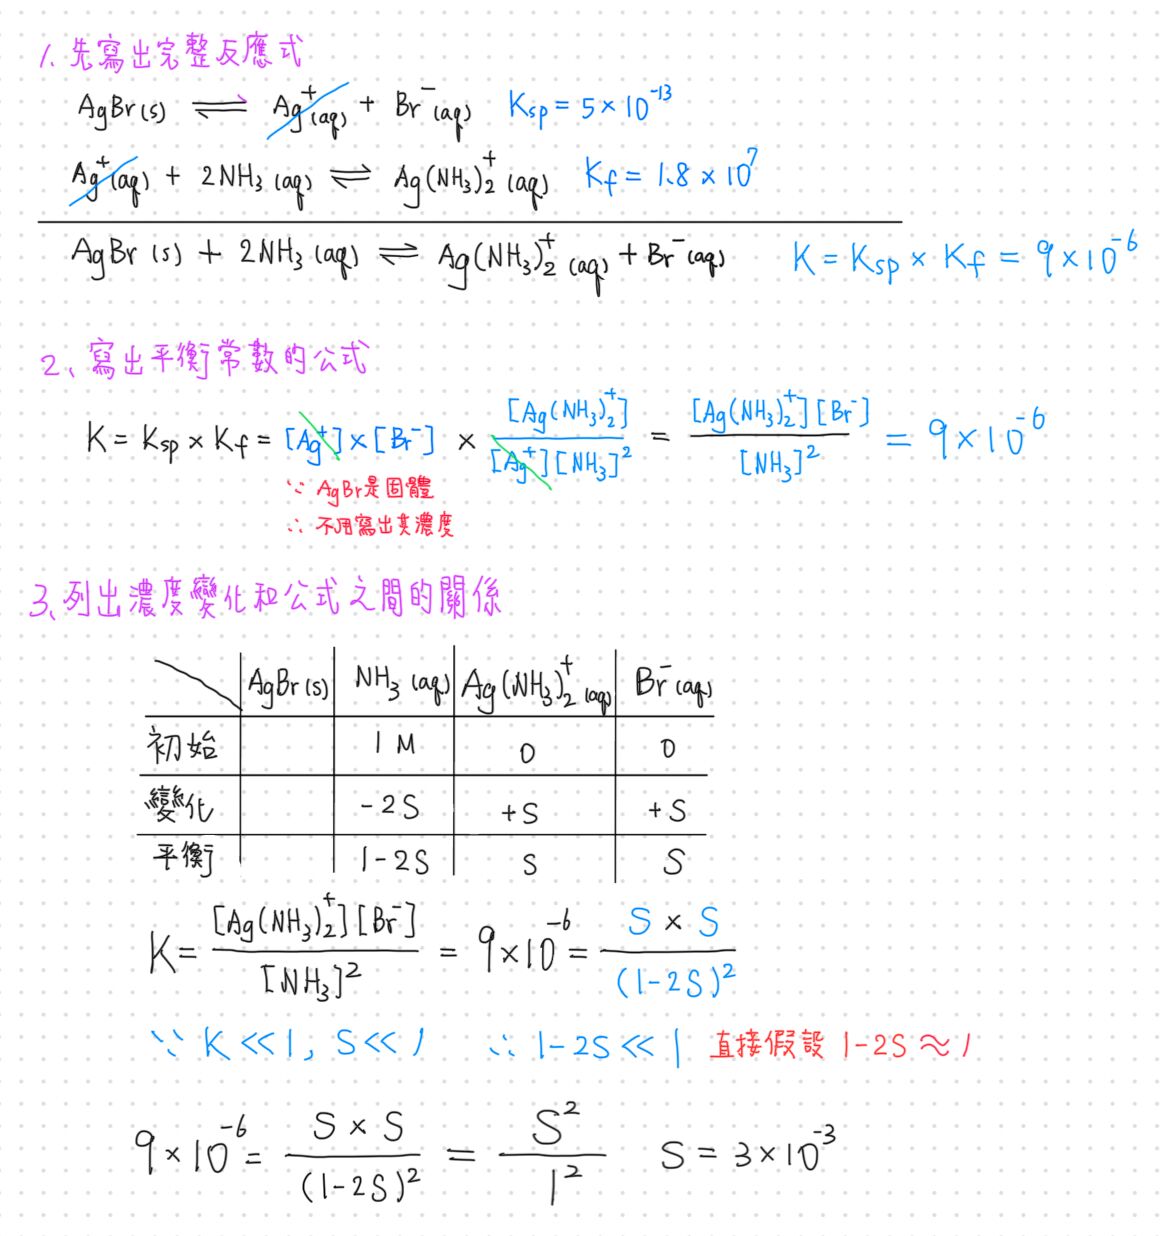 1、先寫出完整反應式
AgBr(s) ⇌ Ag⁺(aq) + Br⁻(aq) Ksp = 5×10⁻¹³
Ag⁺(aq) + 2NH₃(aq) ⇌ Ag(NH₃)₂⁺(aq) Kf = 1.8×10⁷
AgBr(s) + 2NH₃(aq) ⇌ Ag(NH₃)₂⁺(aq) + Br⁻(aq) K = Ksp × Kf = 9×10⁻⁶
2、寫出平衡常數的公式
K = Ksp × Kf = [Ag⁺]×[Br⁻] × [Ag(NH₃)₂⁺]/[Ag⁺][NH₃]² = [Ag(NH₃)₂⁺][Br⁻]/[NH₃]² = 9×10⁻⁶
∵ AgBr是固體
∴ 不用寫出其濃度
3、列出濃度變化和公式之間的關係
AgBr(s) NH₃(aq) Ag(NH₃)₂⁺(aq) Br⁻(aq)
初始 1M 0 0
變化 -2S +S +S
平衡 1-2S S S
K = [Ag(NH₃)₂⁺][Br⁻]/[NH₃]² = 9×10⁻⁶ = S×S/(1-2S)²
∵ K≪1, S≪1 ∴ 1-2S≪1 直接假設 1-2S≈1
9×10⁻⁶ = S×S/(1-2S)² = S²/1² S = 3×10⁻³